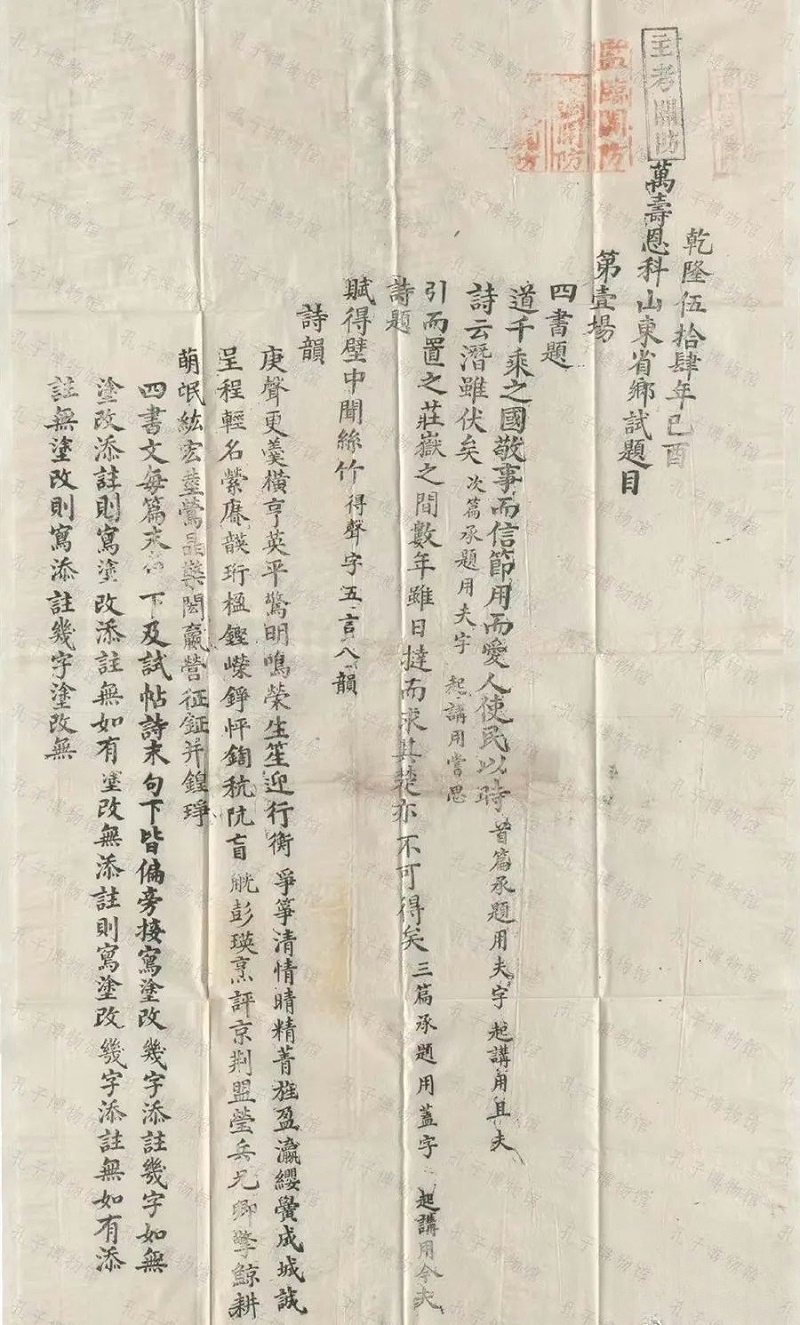 乾隆伍拾肆年己酉
主考關防
萬壽恩科山東省鄉試題目
監臨關防
關防
第壹場
四書題
道千乘之國敬事而信節用而愛人使民以時 首篇承題用夫字 起講用且夫
詩云潛雖伏矣 次篇承題用夫字 起講用嘗思
引而置之莊嶽之間數年雖日撻而求其楚亦不可得矣 三篇承題用蓋字 起講用今夫
詩題
賦得壁中聞絲竹 得聲字五言八韻
詩韻
庚聲更羹橫亨英平驚明鳴榮生笙迎行衡爭箏清情晴精菁旌盈瀛纓黌成城誠
呈程輕名縈賡韺珩楹鏗嶸錚怦鍧秔阬盲觥彭瑛烹評京荆盟瑩兵兄卿擎鯨耕
萌氓紘宏莖鶯閎贏營征鉦并鍠琤
四書文每篇末下及試帖詩末句下皆偏旁接寫塗改幾字添註幾字如無
塗改添註則寫塗改添註無如有塗改無添註則寫塗改幾字添註無如有添
註無塗改則寫添註幾字塗改無
孔子博物馆